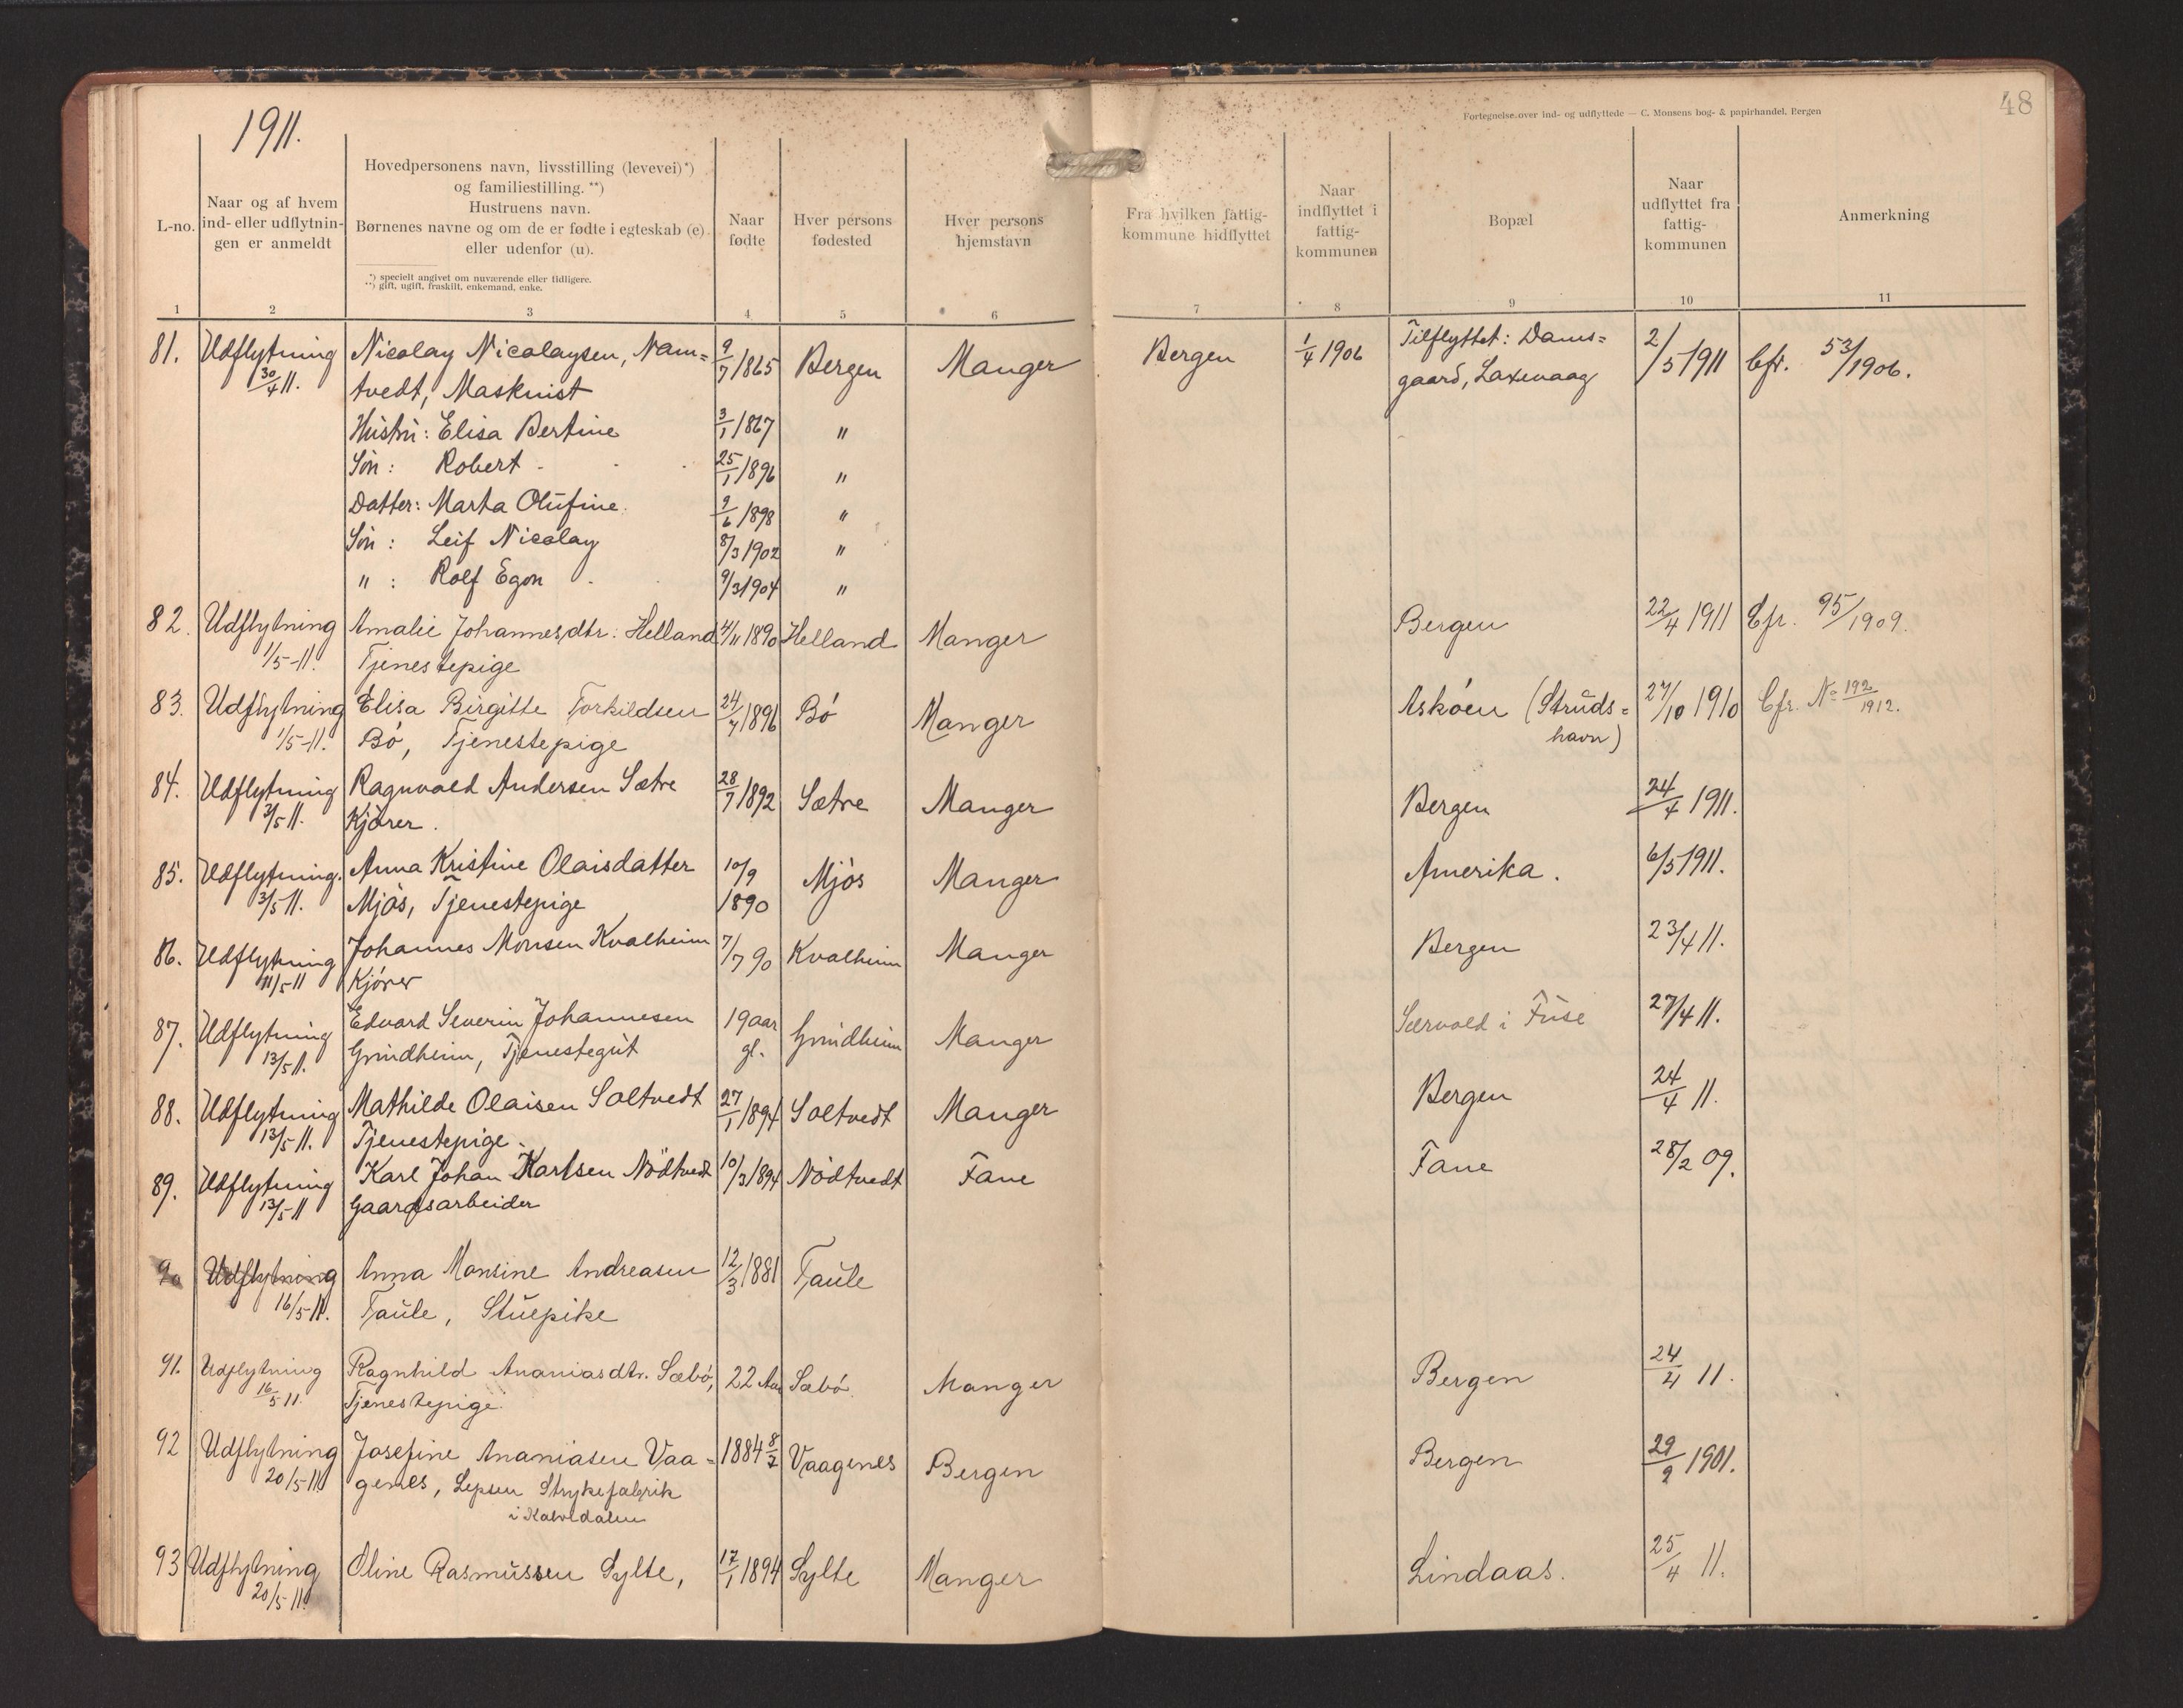 1911.
48
Fortegnelse over ind- og udflyttede — C. Monsens bog- & papirhandel, Bergen
L-no.
Naar og af hvem
ind- eller udflytnin-
gen er anmeldt
Hovedpersonens navn, livsstilling (levevei)*)
og familiestilling. **)
Hustruens navn.
Børnenes navne og om de er fødte i egteskab (e)
eller udenfor (u).
*) specielt angivet om nuværende eller tidligere.
**) gift, ugift, fraskilt, enkemand, enke.
Naar
fødte
Hver persons
fødested
Hver persons
hjemstavn
Fra hvilken fattig-
kommune hidflyttet
Naar
indflyttet i
fattig-
kommunen
Bopæl
Naar
udflyttet fra
fattig-
kommunen
Anmerkning
1 2 3 4 5 6 7 8 9 10 11
81. Udflytning Nicolay Nicolaysen, Nam= 9/7 1865 Bergen Manger Bergen 1/4 1906 Tilflyttet: Dams= 2/5 1911 Cfr. 53/1906.
30/4 11. tvedt, Maskinist gaard, Laxevaag
Hustru: Elisa Bertine 3/1 1867 "
Søn: Robert 25/1 1896 "
Datter: Marta Olufine. 9/6 1898 "
Søn: Leif Nicolay 8/3 1902 "
" : Rolf Egon 9/3 1904 "
82. Udflytning Amalie Johannesdtr: Helland 4/11 1890 Helland Manger Bergen 22/4 1911 Cfr. 95/1909.
1/5-11. Tjenestepige
83. Udflytning Elisa Birgitte Torkildsen 24/7 1896 Bö Manger Askøen (Struds= 27/10 1910 Cfr. No 192/1912.
1/5-11. Bö, Tjenestepige havn)
84. Udflytning Ragnvald Andersen Sætre 28/7 1892 Sætre Manger Bergen 24/4 1911.
3/5 11. Kjörer.
85. Udflytning. Anna Kristine Olaisdatter 10/9 Mjös Manger Amerika. 6/5 1911.
3/5 11. Mjös, Tjenestepige 1890
86. Udflytning Johannes Monsen Kvalheim 7/7 90 Kvalheim Manger Bergen 23/4 11.
11/5 11 Kjörer
87. Udflytning Edvard Severin Johannesen 19 aar Grindheim Manger Særvold i Fuse 27/4 11.
13/5 11. Grindheim, Tjenestegut gl.
88. Udflytning Mathilde Olaisen Soltvedt 27/1 1894 Soltvedt Manger Bergen 24/4 11.
13/5 11. Tjenestepige.
89. Udflytning Karl Johan Karlsen Nödtvedt 10/3 1894 Nödtvedt Fane Fane 28/2 09.
13/5 11 Gaardsarbeider
90 Udflytning Anna Monsine Andreasen 12/3 1881 Taule
16/5-11. Taule, Stuepike
91. Udflytning Ragnhild Ananiasdtr. Sæbö, 22 Aar Sæbö. Manger Bergen 24/4 11.
16/5 11. Tjenestepige.
92 Udflytning Josefine Ananiasen Vaa= 1884 8/7 Vaagenes Bergen Bergen 29/9 1901.
20/5-11 genes, Lepsen Strykefabrik
i Kalvedalen
93 Udflytning Oline Rasmussen Sylte, 17/1 1894 Sylte Manger Lindaas. 25/4 11.
20/5-11.